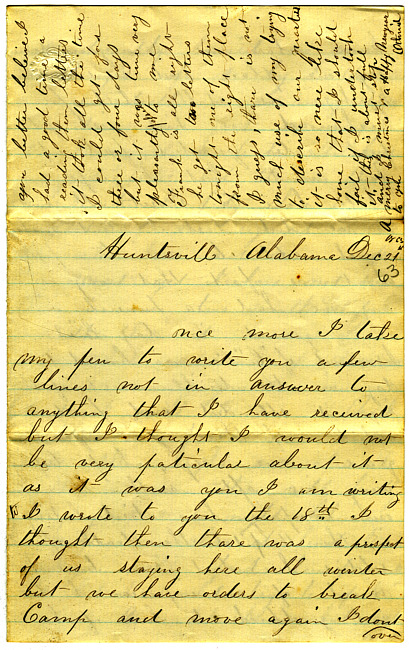 Huntsvill Alabama Dec 21st
63
once more I take
my pen to write you a few
lines not in answer to
anything that I have received
but I thought I would not
be very paticular about it
as it was you I am writing
to I wrote to you the 18th I
thought then thare was a prospect
of us staying here all winter
but we have orders to break
Camp and move again I dont
over
you better believe I
had a good time a
reading them letters
it took all the time
I could get for
three or four days
but it was time very
pleasantly to me
Thank is all right
he got letters
tonight one of them
from the right place
I guess, thare is not
much use of my trying
to describe our quarters
it is so near like
home that I should
fail if I undertook
it is about
and I must stop
A merry Christmas & a Happy
to you